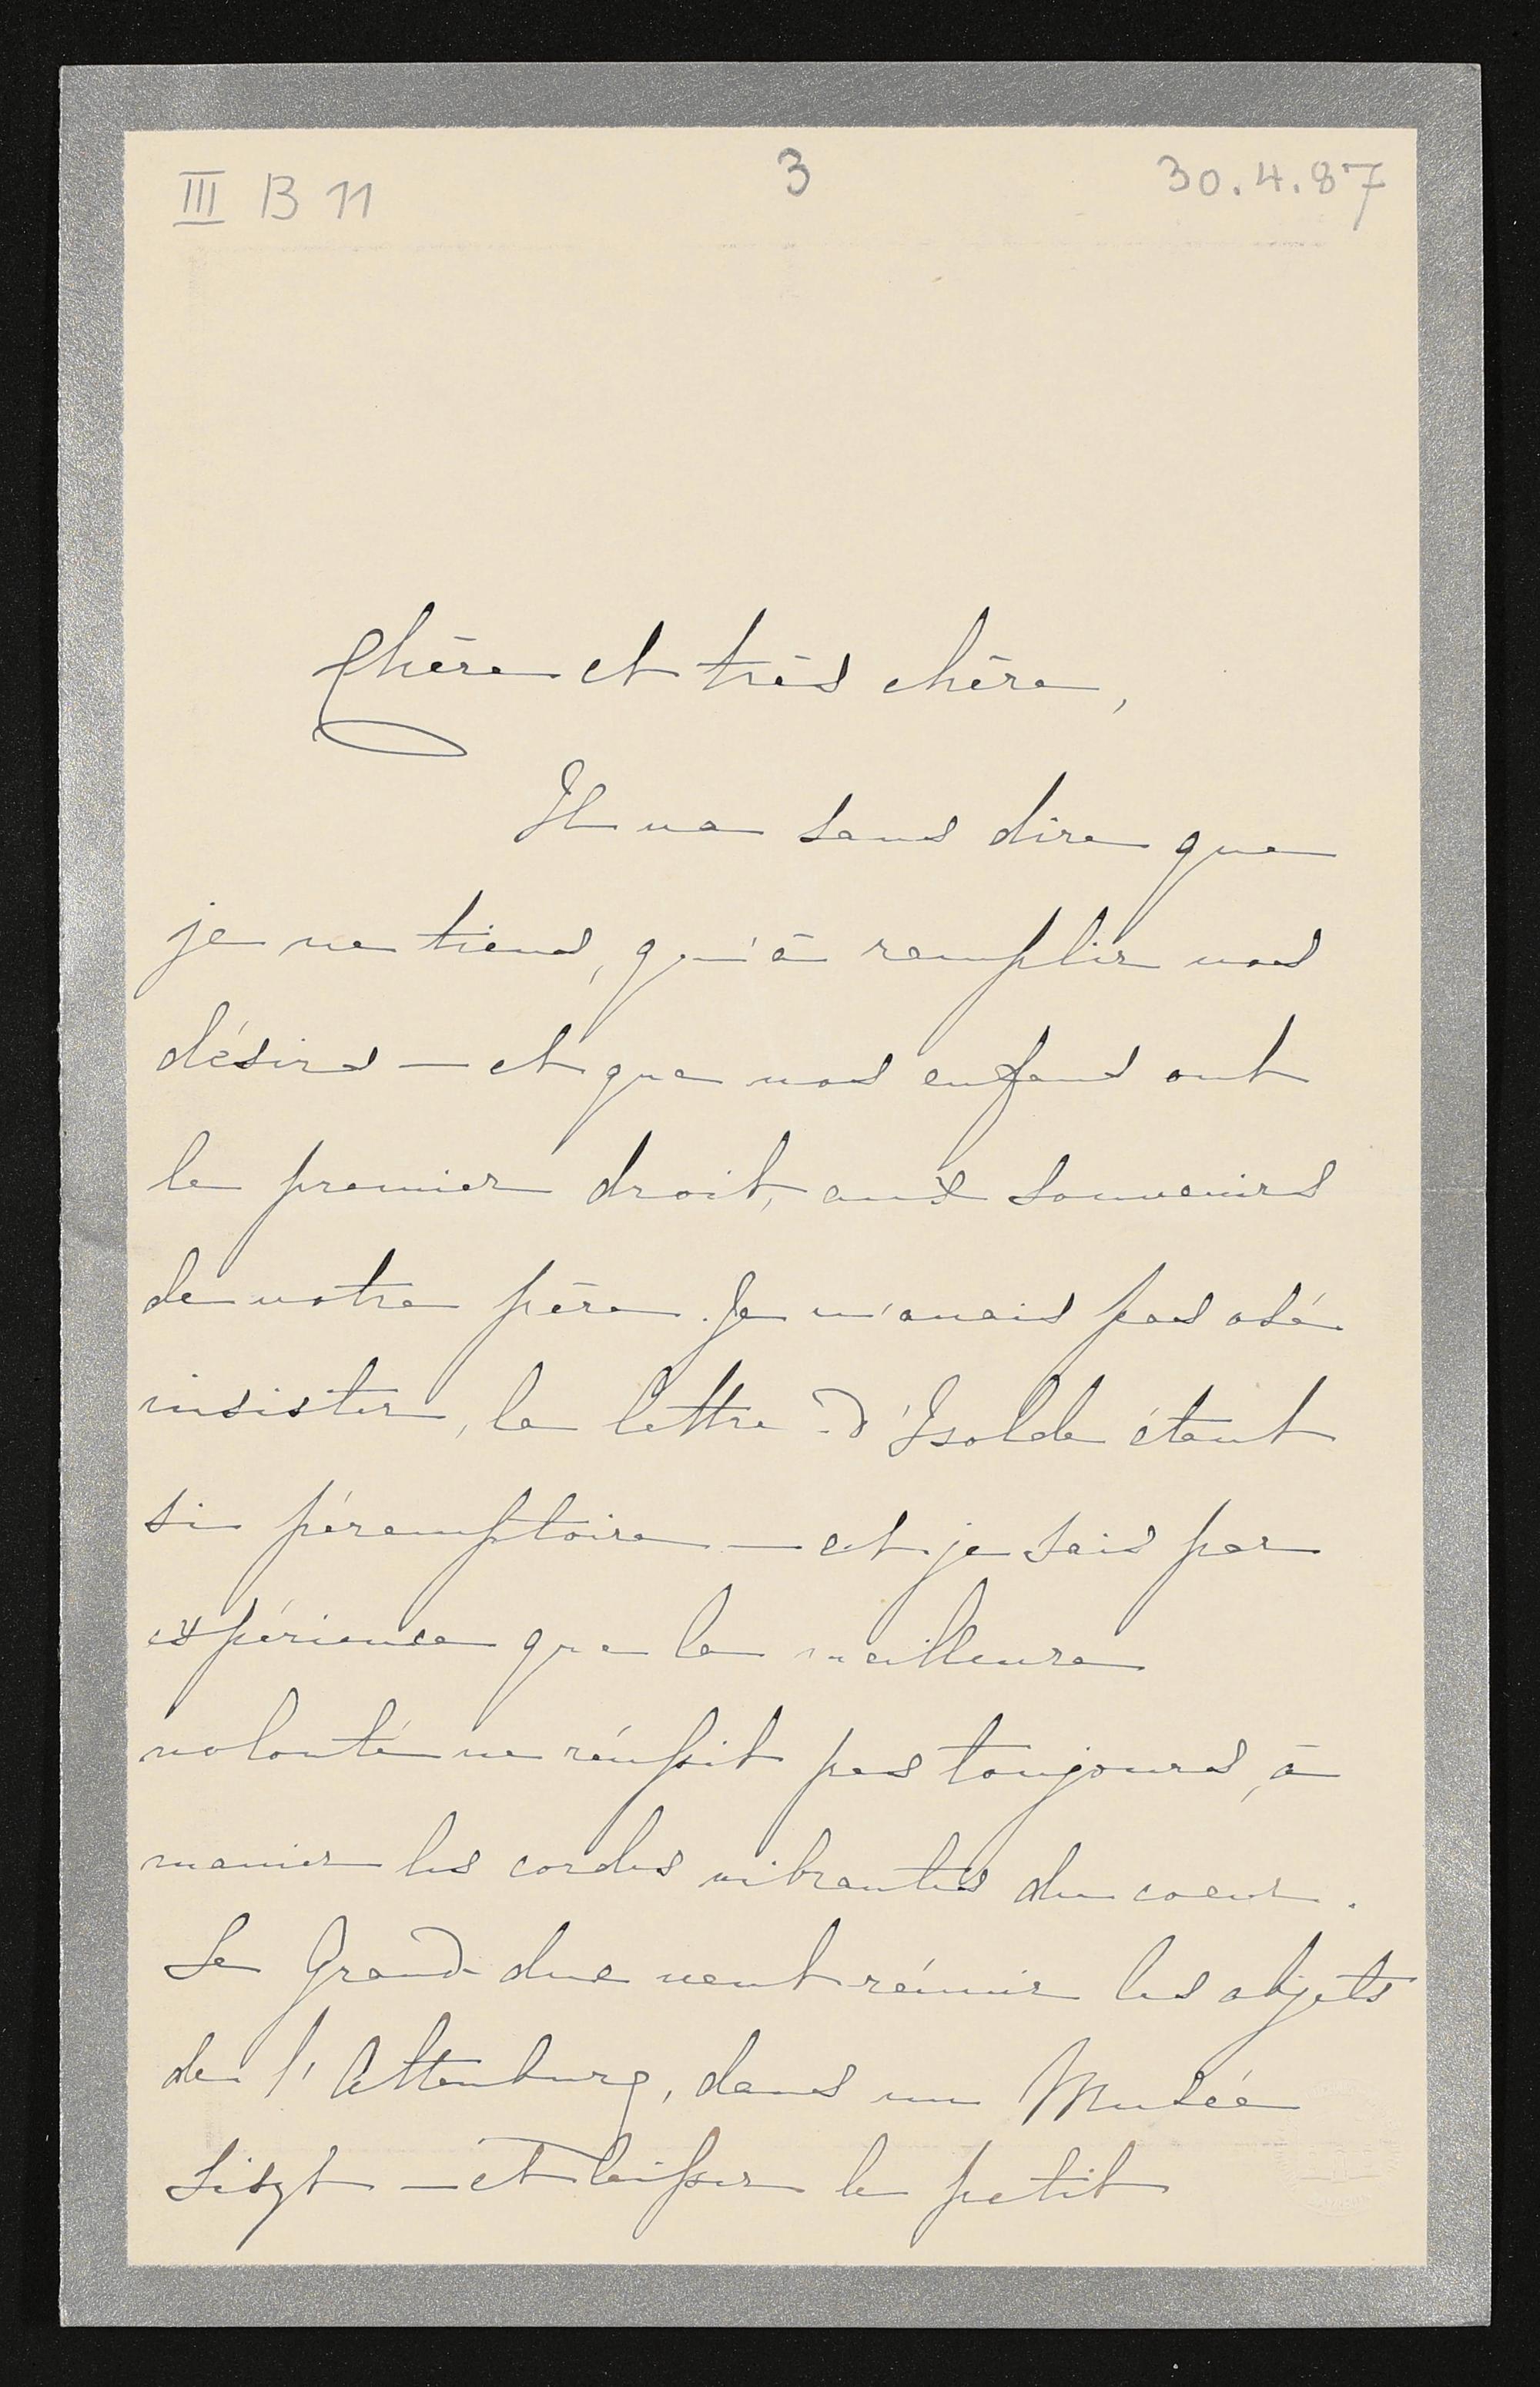 III B 11
3
30.4.87
Chère et très chère,
Il va sans dire que
je ne tiens, qu'à remplir vos
désirs — et que vos enfans ont
le premier droit, aux souvenirs
de votre père. Je n'avais pas osé
insister, la lettre d'Isolde étant
si péremptoire — et je sais par
expérience que la meilleure
volonté ne réussit pas toujours, à
manier les cordes vibrantes du coeur.
Le Grand-duc veut réunir les objets
de l'Altenburg, dans un Musée
Liszt — et laisser le petit